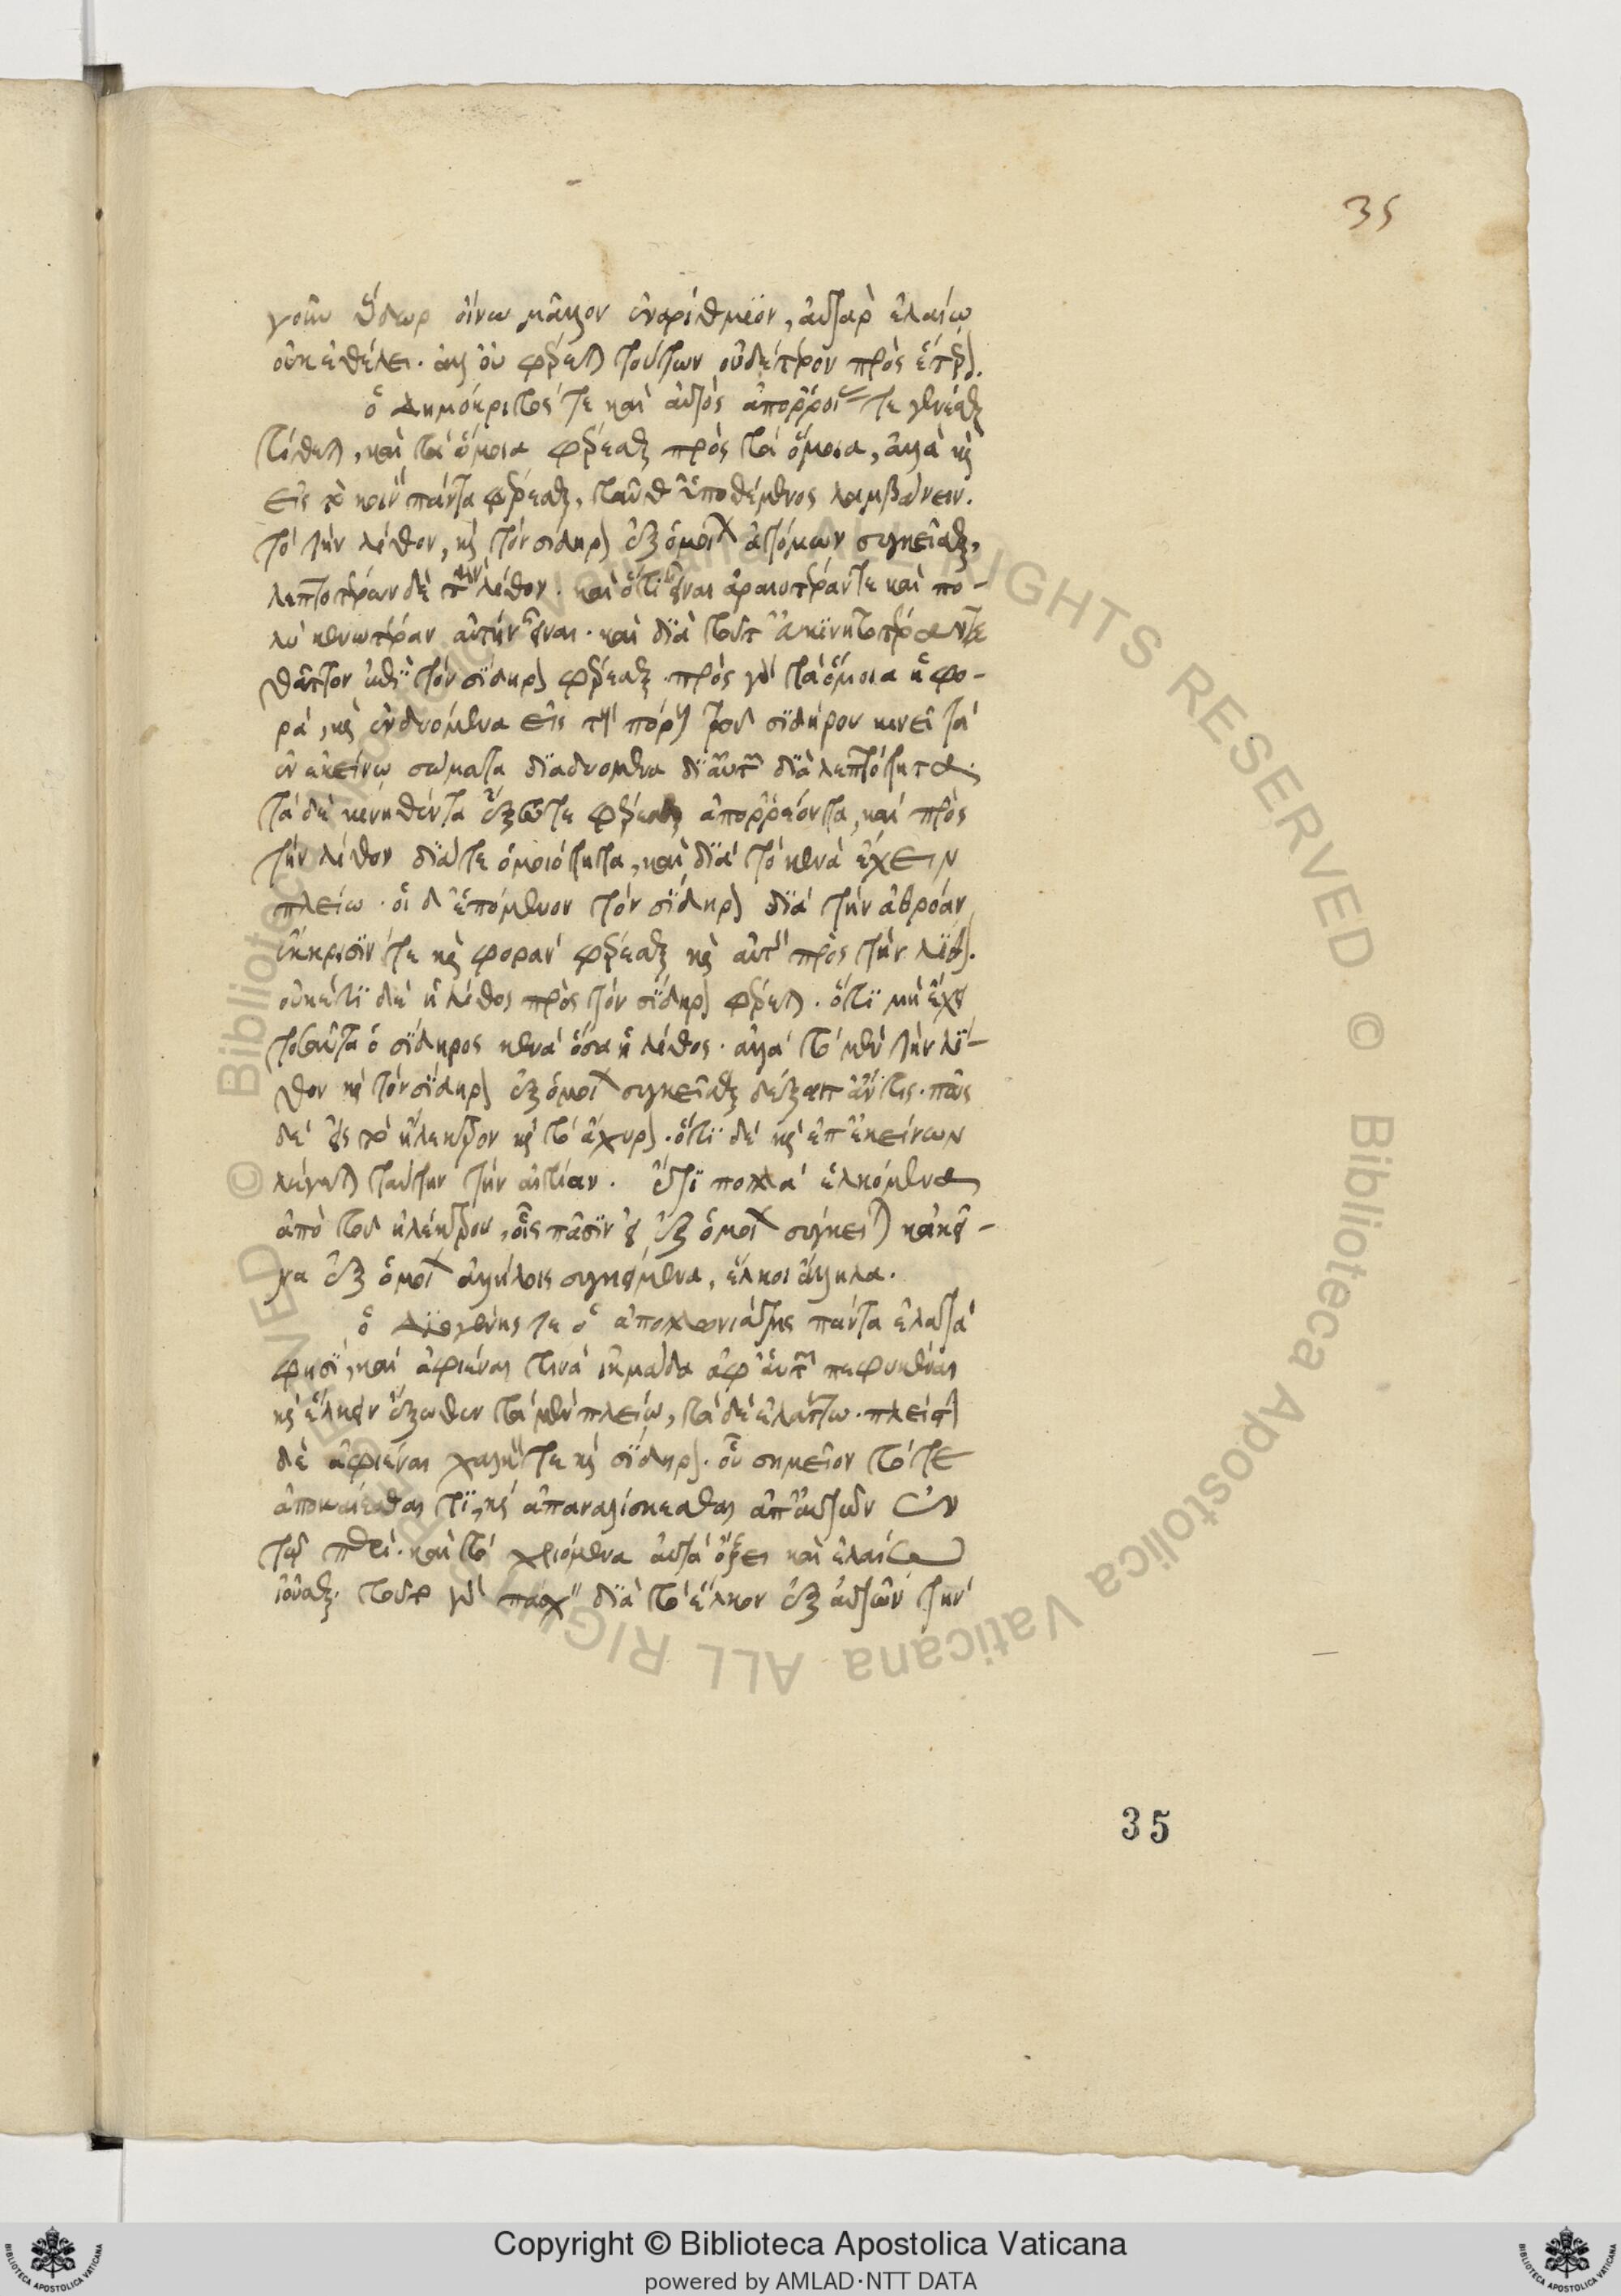 35
γοῦν ὕδωρ οἴνω μᾶλλον ἐναρίθμϊον, ἀυτὰρ ἐλαίω
οὐκ ἐθέλει. ἀλλ' οὐ φέρεται τούτων οὐδέτερον πρὸς ἕτερον.
ὁ Δημόκριτος τε καὶ αὐτὸς ἀπορροίας τε γενέσθαι
τίθεται, καὶ τὰ ὅμοια φέρεσθαι πρὸς τὰ ὅμοια, ἀλλὰ καὶ
εἰς τὸ κοινὸν πάντα φέρεσθαι, ταῦθ' ὑποθέμενος λαμβάνειν.
τὸ τὴν λίθον, καὶ τὸν σίδηρον ἐξ ὁμοίων ἀτόμων συγκεῖσθαι,
λεπτοτέρων δὲ τὴν λίθον. καὶ ὅτι εἶναι ἀραιοτέραν τε καὶ πο-
λὺ κενωτέραν αὐτὴν εἶναι. καὶ δϊὰ τοῦτ' ἀκϊνητοτέραν τε
θᾶττον ἐπῒ τὸν σΐδηρον φέρεσθαι. πρὸς γὰρ τὰ ὅμοια ἡ φο-
ρά, καὶ ἐνδυόμενα εἰς τοὺς πόρους τοῦ σϊδήρου κινεῖ τὰ
ἐν ἐκείνω σώματα δϊαδυόμενα δϊ' αὐτῶν δϊὰ λεπτότητα.
τὰ δὲ κινηθέντα ἔξω τε φέρεσθαι ἀπορρέοντα, καὶ πρὸς
τὴν λίθον δϊά τε ὁμοιότητα, καὶ δϊὰ τὸ κενὰ ἔχειν
πλείω. οἷ δ' ἑπόμενον τὸν σΐδηρον δϊὰ τὴν ἀθρόαν
ἔκκρισΐν τε καὶ φορὰν φέρεσθαι καὶ αὐτὸν πρὸς τὴν λΐθον.
οὐκέτϊ δὲ ἡ λίθος πρὸς τὸν σΐδηρον φέρεται. ὅτϊ μὴ ἔχει
τοσαῦτα ὁ σΐδηρος κενὰ ὅσα ἡ λίθος. ἀλλὰ τὸ μὲν τὴν λΐ-
θον καὶ τὸν σΐδηρον ἐξ ὁμοίων συγκεῖσθαι δέξαιτ' ἄν τις. πῶς
δὲ εἰς τὸ ἤλεκτρον καὶ τὸ ἄχυρον. ὅτϊ δὲ καὶ ἐπ' ἐκείνων
λέγεται ταύτην τὴν αἰτίαν. ἔστϊ πολλὰ ἑλκόμενα
ἀπὸ τοῦ ἠλέκτρου, οἷς πᾶσϊν εἰ ἐξ ὁμοίων σύγκειται κἀκεῖ-
να ἐξ ὁμοίων ἀλλήλοις συγκείμενα, ἕλκοι ἄλληλα.
ὁ Δϊογένης τε ὁ ἀπολλωνιάτης πάντα ἐλατὰ
φησΐ, καὶ ἀφιέναι τινὰ ἰκμάδα ἀφ' αὑτῶν πεφυκέναι
καὶ ἕλκειν ἔξωθεν τὰ μὲν πλείω, τὰ δὲ ἐλάττω. πλείστην
δὲ ἀφιέναι χαλκόν τε καὶ σΐδηρον. οὗ σημεῖον τό τε
ἀποκαίεσθαι τϊ, καὶ ἀπαναλίσκεσθαι ἀπ' αὐτῶν ἐν
τῷ πυρί. καὶ τὸ χριόμενα αὐτὰ ὄξει καὶ ἐλαίῳ
ἰοῦσθαι. τοῦτο γὰρ πάσχειν δϊὰ τὸ ἕλκον ἐξ αὐτῶν τὴν
35
© Biblioteca Apostolica Vaticana ALL RIGHTS RESERVED © Biblioteca Apostolica Vaticana ALL RIGHTS RESERVED
Copyright © Biblioteca Apostolica Vaticana
powered by AMLAD·NTT DATA
BIBLIOTECA APOSTOLICA VATICANA
BIBLIOTECA APOSTOLICA VATICANA